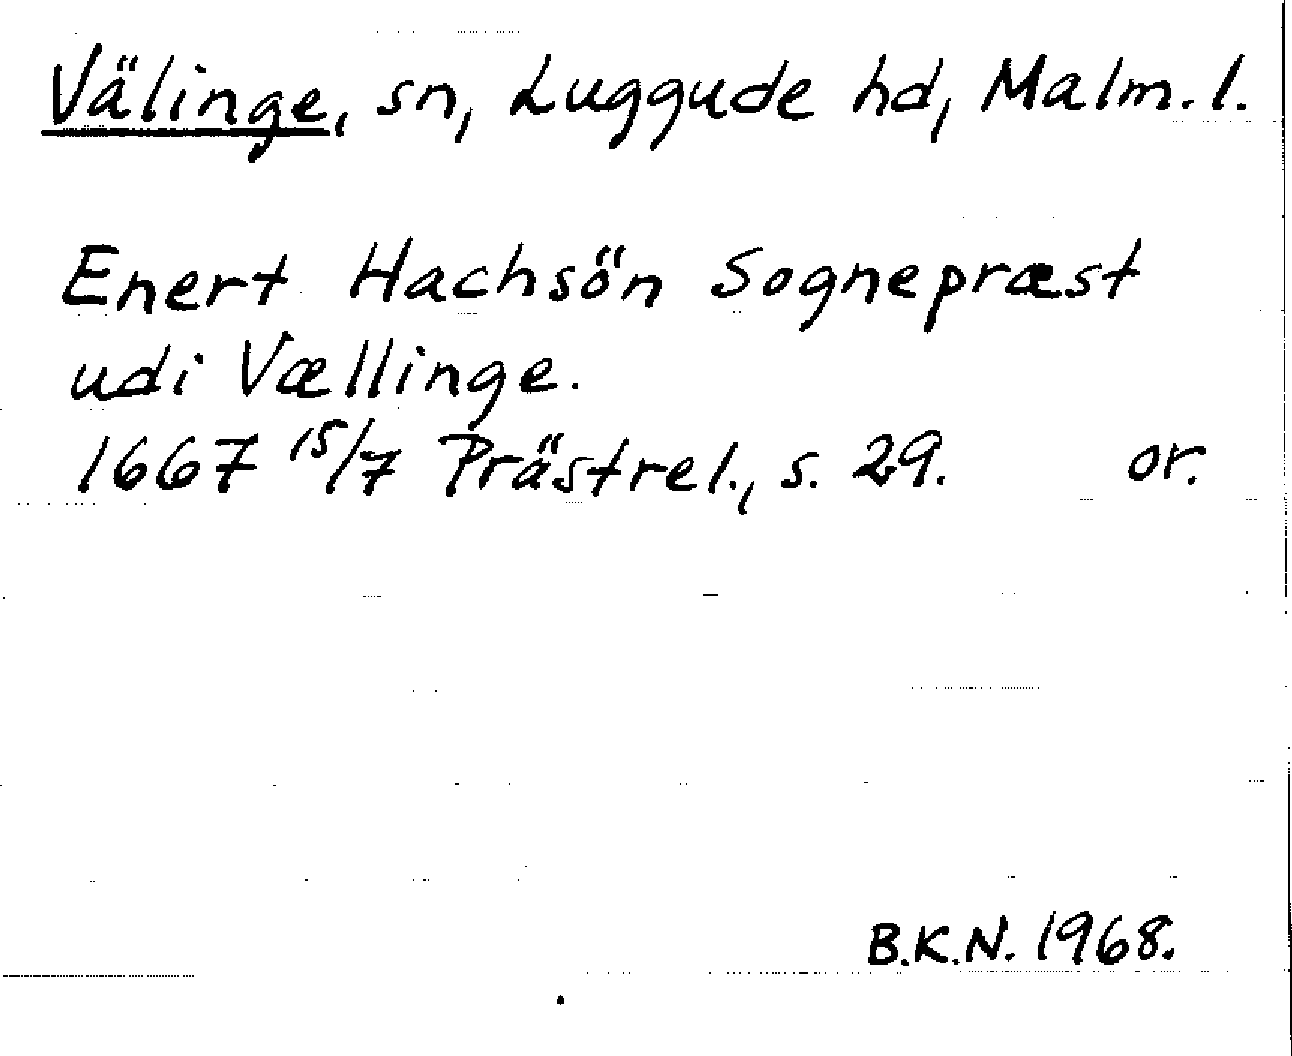 Välinge, sn, Luggude hd, Malm. l.
Enert Hachsön Sognepræst
udi Vællinge.
1667 15/7 Prästrel., s. 29. or.
B.K.N. 1968.